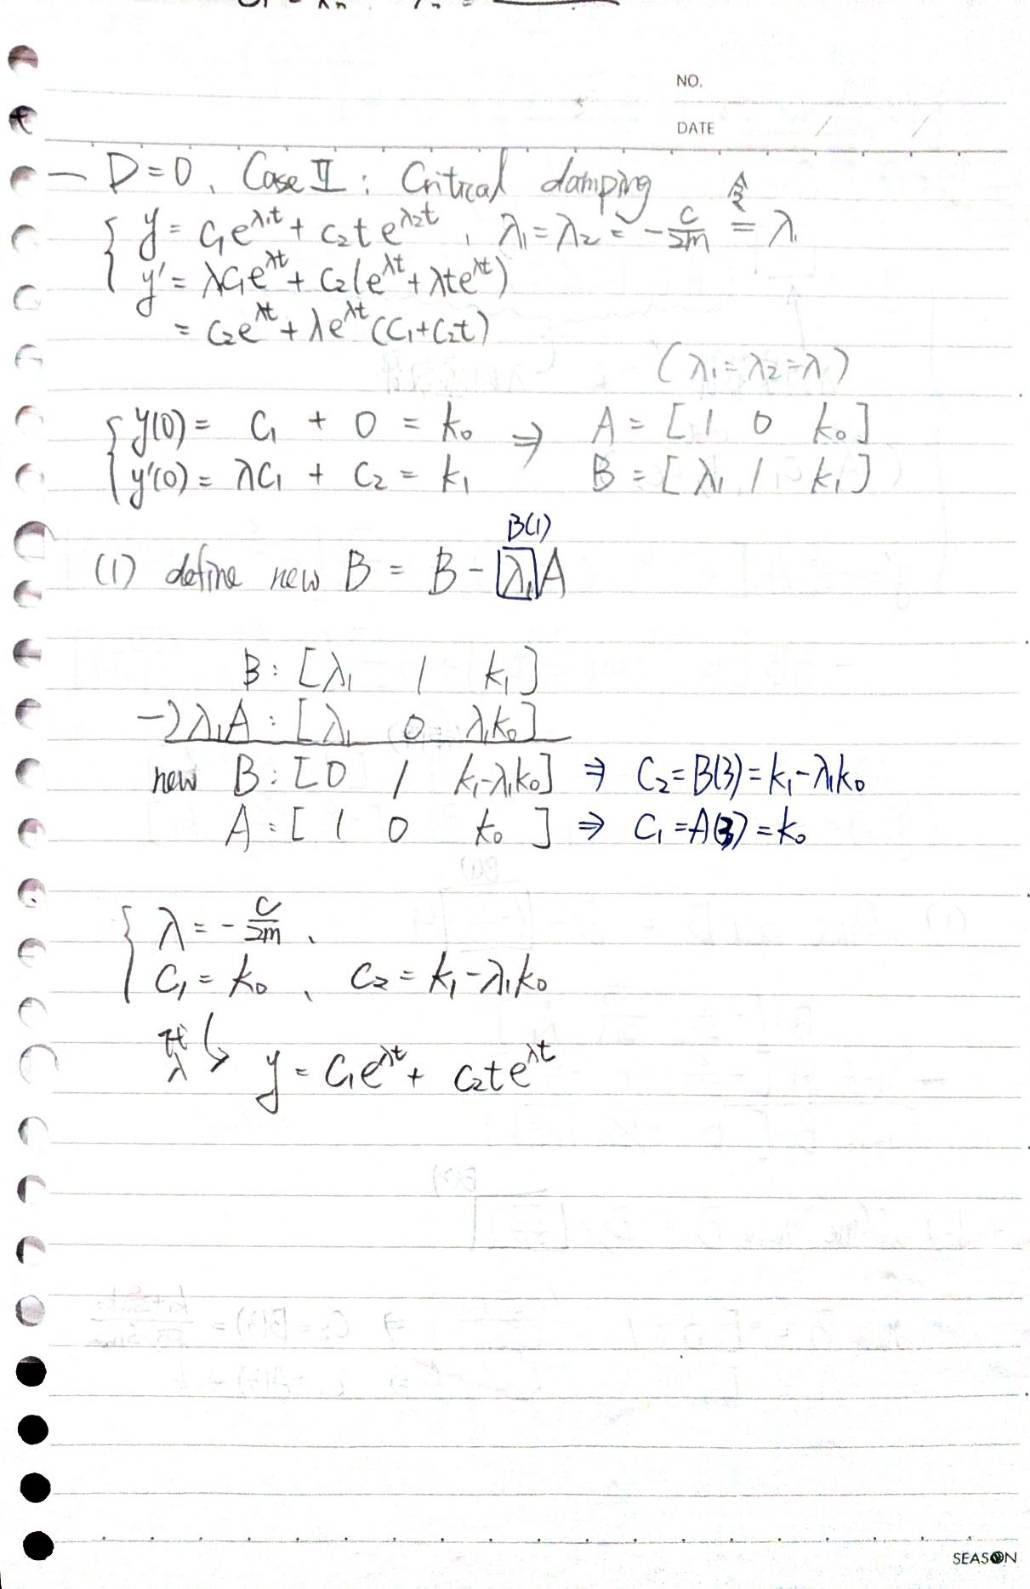 NO.
DATE / /
— D=0、Case Ⅱ: Critical damping
{ y = C₁e^{λ₁t} + C₂te^{λ₂t}, λ₁=λ₂ = -c/2m 令= λ
y' = λC₁e^{λt} + C₂(e^{λt} + λte^{λt})
= C₂e^{λt} + λe^{λt}(C₁+C₂t)
(λ₁=λ₂=λ)
{ y(0) = C₁ + 0 = k₀ ⇒ A = [1 0 k₀]
y'(0) = λC₁ + C₂ = k₁ B = [λ₁ 1 k₁]
B(1)
(1) define new B = B - λ₁A
B: [λ₁ 1 k₁]
-) λ₁A: [λ₁ 0 λ₁k₀]
new B: [0 1 k₁-λ₁k₀] ⇒ C₂=B(3)=k₁-λ₁k₀
A = [1 0 k₀] ⇒ C₁=A(3)=k₀
{ λ = -c/2m、
C₁ = k₀、 C₂ = k₁-λ₁k₀
代入 y = C₁e^{λt} + C₂te^{λt}
SEASON